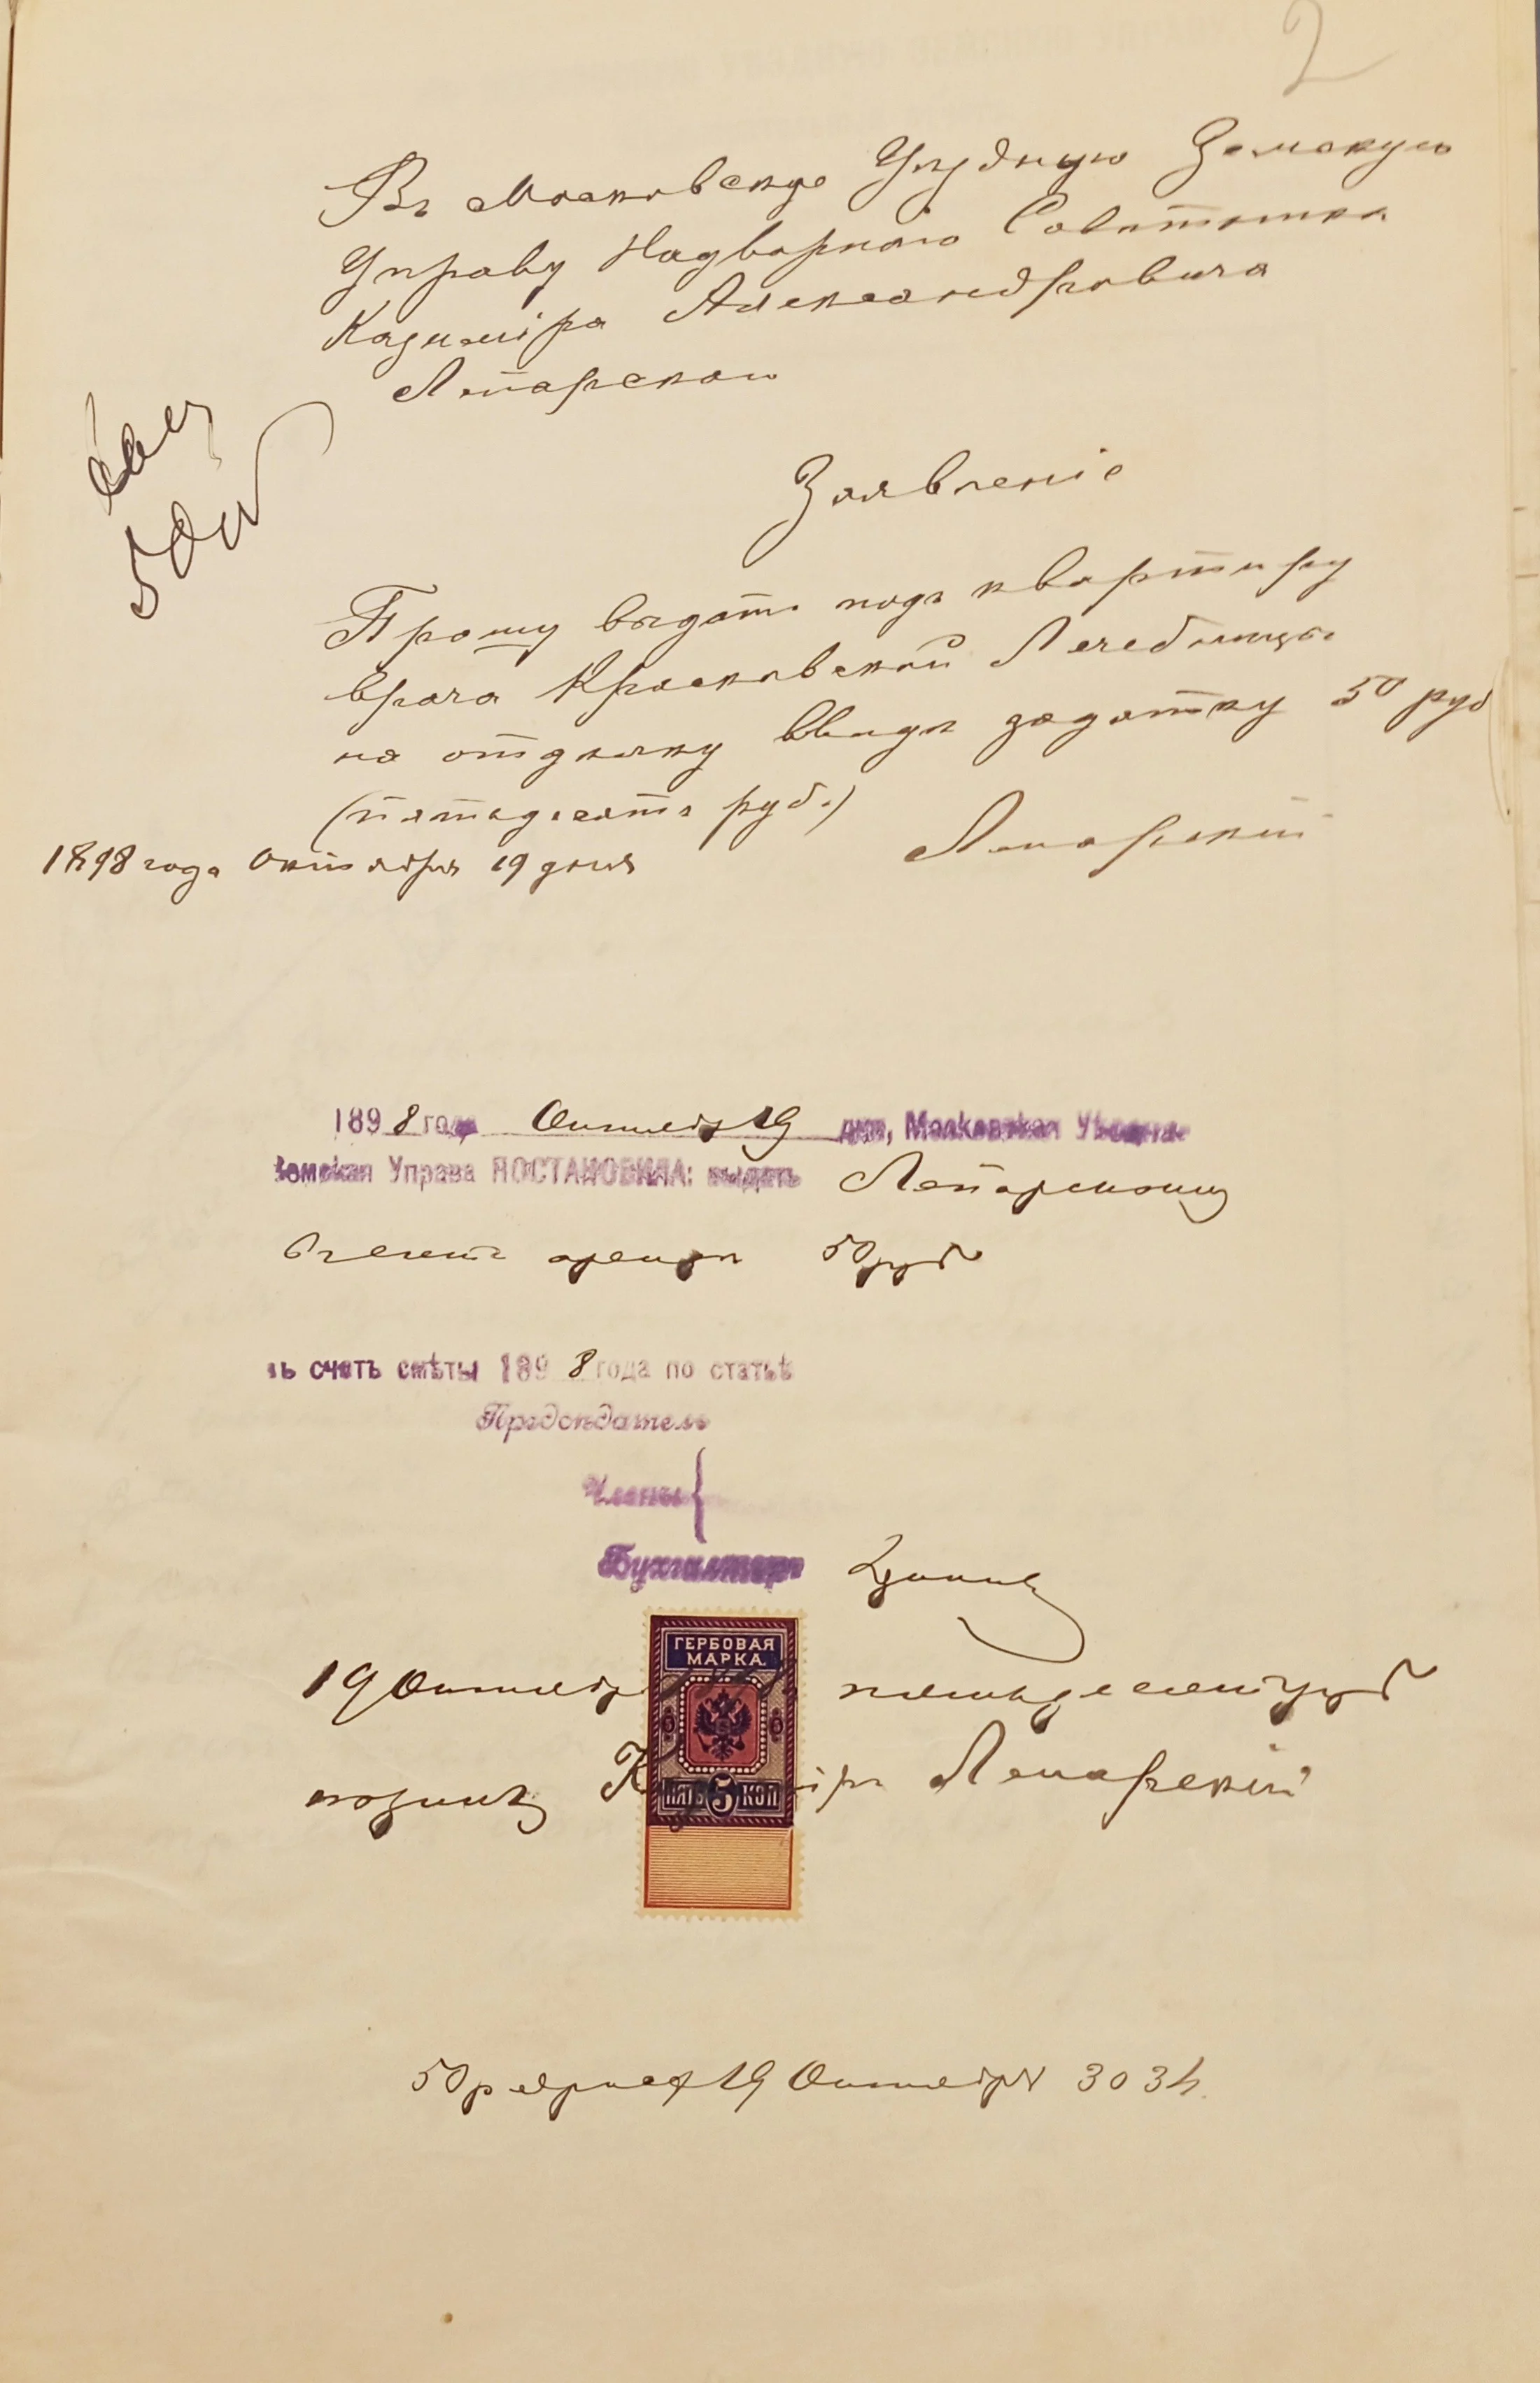 2
Въ Московскую Уѣздную Земскую
Управу Надворнаго Совѣтника
Казиміра Александровича
Лепарскаго
Заявленіе
Прошу выдать подъ квартиру
врача Красковской Лечебницы
на отдѣлку ввидѣ задатку 50 руб
(пятьдесятъ руб.)
Лепарскій
1898 года Октября 19 дня
1898 года Октября 19 дня, Московская Уѣздная
Земская Управа ПОСТАНОВИЛА: выдать Лепарскому
въ счетъ аренды 50 руб
въ счетъ смѣты 1898 года по статьѣ
Предсѣдатель
Члены
Бухгалтеръ
ГЕРБОВАЯ
МАРКА.
19 Октября пятьдесятъ руб
получилъ Казиміръ Лепарскій
ПЯТЬ 5 КОП
50 р 19 Октября 303